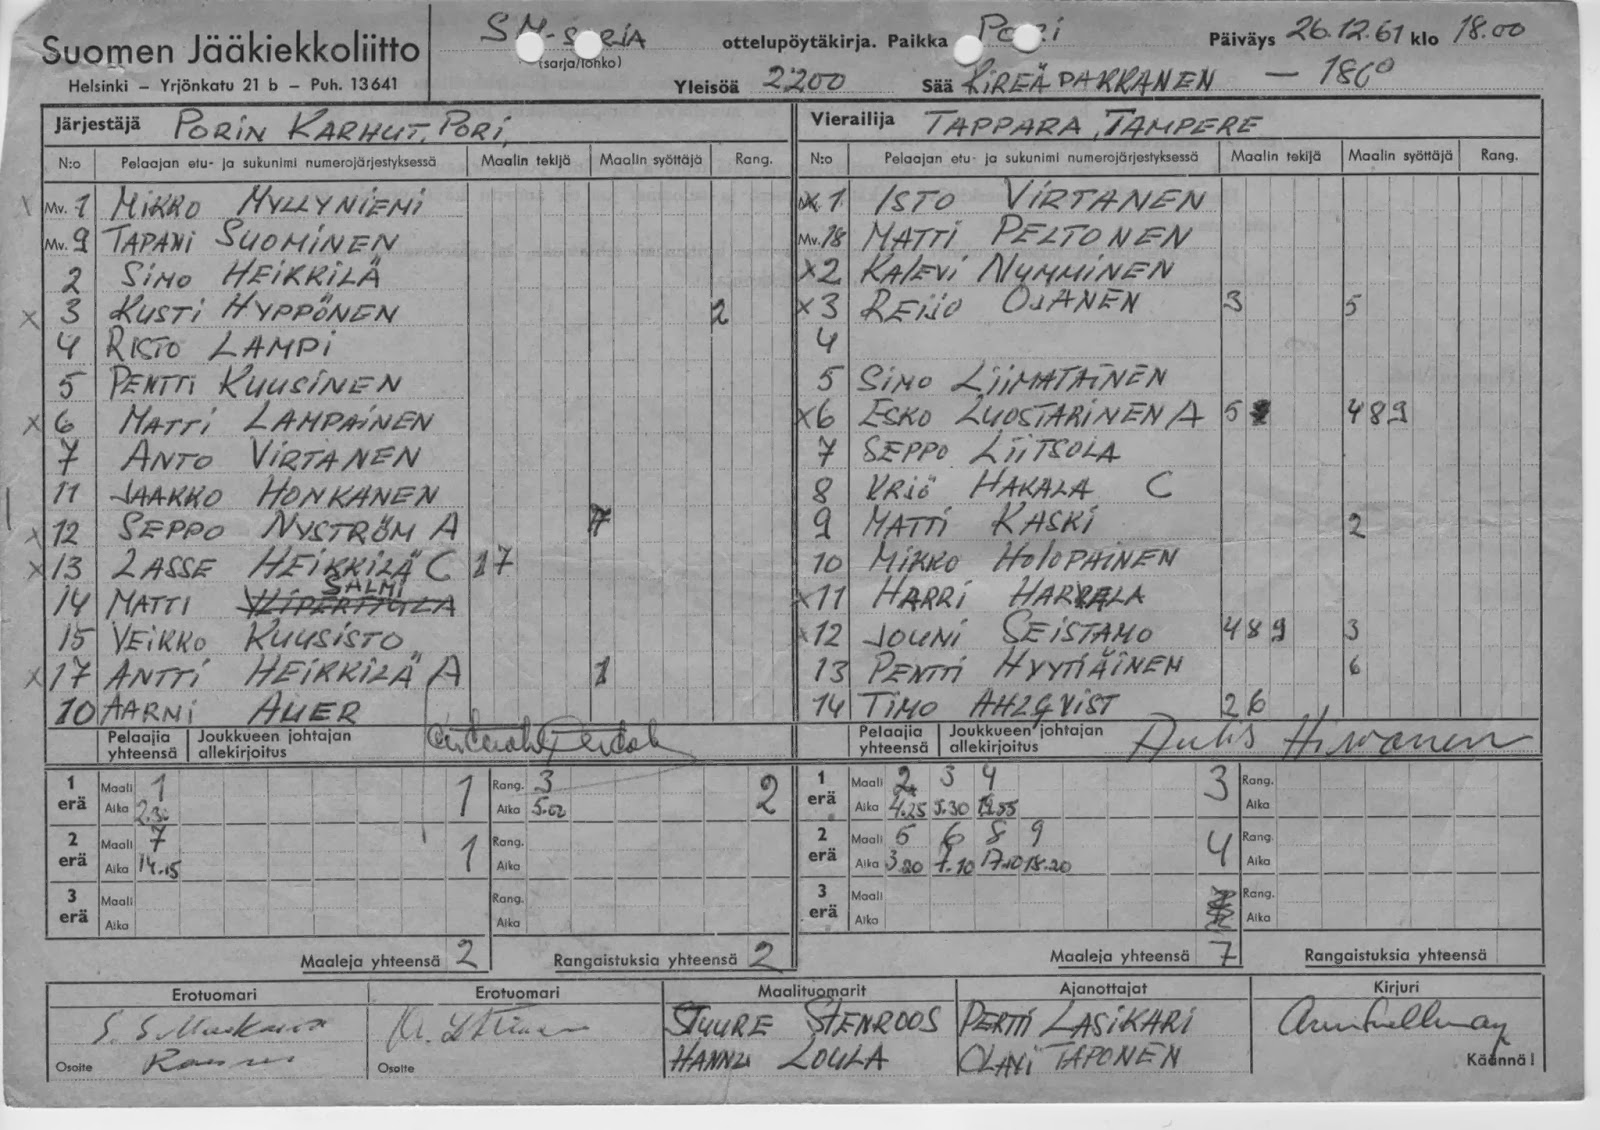 Suomen Jääkiekkoliitto
Helsinki – Yrjönkatu 21 b – Puh. 13641
SM-sarja
(sarja/lohko)
ottelupöytäkirja. Paikka Pori Päiväys 26.12.61 klo 18.00
Yleisöä 2200 Sää KIREÄ PAKKANEN – 18°
Järjestäjä PORIN KARHUT, PORI,
N:o Pelaajan etu- ja sukunimi numerojärjestyksessä Maalin tekijä Maalin syöttäjä Rang.
x Mv. 1 MIKKO MYLLYNIEMI
Mv. 9 TAPANI SUOMINEN
2 SIMO HEIKKILÄ
x 3 KUSTI HYPPÖNEN 2
4 RISTO LAMPI
5 PENTTI KUUSINEN
x 6 MATTI LAMPAINEN
7 ANTO VIRTANEN
11 JAAKKO HONKANEN
x 12 SEPPO NYSTRÖM A 7
x 13 LASSE HEIKKILÄ C 1 7
14 MATTI SALMI
15 VEIKKO KUUSISTO
x 17 ANTTI HEIKKILÄ A 1
10 AARNI AUER
Pelaajia yhteensä Joukkueen johtajan allekirjoitus
Vierailija TAPPARA, TAMPERE
N:o Pelaajan etu- ja sukunimi numerojärjestyksessä Maalin tekijä Maalin syöttäjä Rang.
x 1 ISTO VIRTANEN
Mv. 18 MATTI PELTONEN
x 2 KALEVI NUMMINEN
x 3 REIJO OJANEN 3 5
4
5 SIMO LIIMATAINEN
x 6 ESKO LUOSTARINEN A 5 4 8 9
7 SEPPO LIITSOLA
8 YRJÖ HAKALA C
9 MATTI KASKI 2
10 MIKKO HOLOPAINEN
x 11 HARRI HARKALA
x 12 JOUNI SEISTAMO 4 8 9 3
13 PENTTI HYYTIÄINEN 6
14 TIMO AHLQVIST 2 6
Pelaajia yhteensä Joukkueen johtajan allekirjoitus Hirvonen
1 erä Maali 1 1 Rang. 3 2
Aika 2.30 Aika 5.02
2 erä Maali 7 1 Rang.
Aika 14.15 Aika
3 erä Maali Rang.
Aika Aika
Maaleja yhteensä 2 Rangaistuksia yhteensä 2
1 erä Maali 2 3 4 3 Rang.
Aika 4.25 5.30 19.55 Aika
2 erä Maali 5 6 8 9 4 Rang.
Aika 3.20 7.10 17.10 18.20 Aika
3 erä Maali Rang.
Aika Aika
Maaleja yhteensä 7 Rangaistuksia yhteensä
Erotuomari Erotuomari Maalituomarit Ajanottajat Kirjuri
STUURE STENROOS PERTTI LASIKARI
HANNU LOULA OLAVI TAPONEN
Osoite Rauma Osoite Käännä!